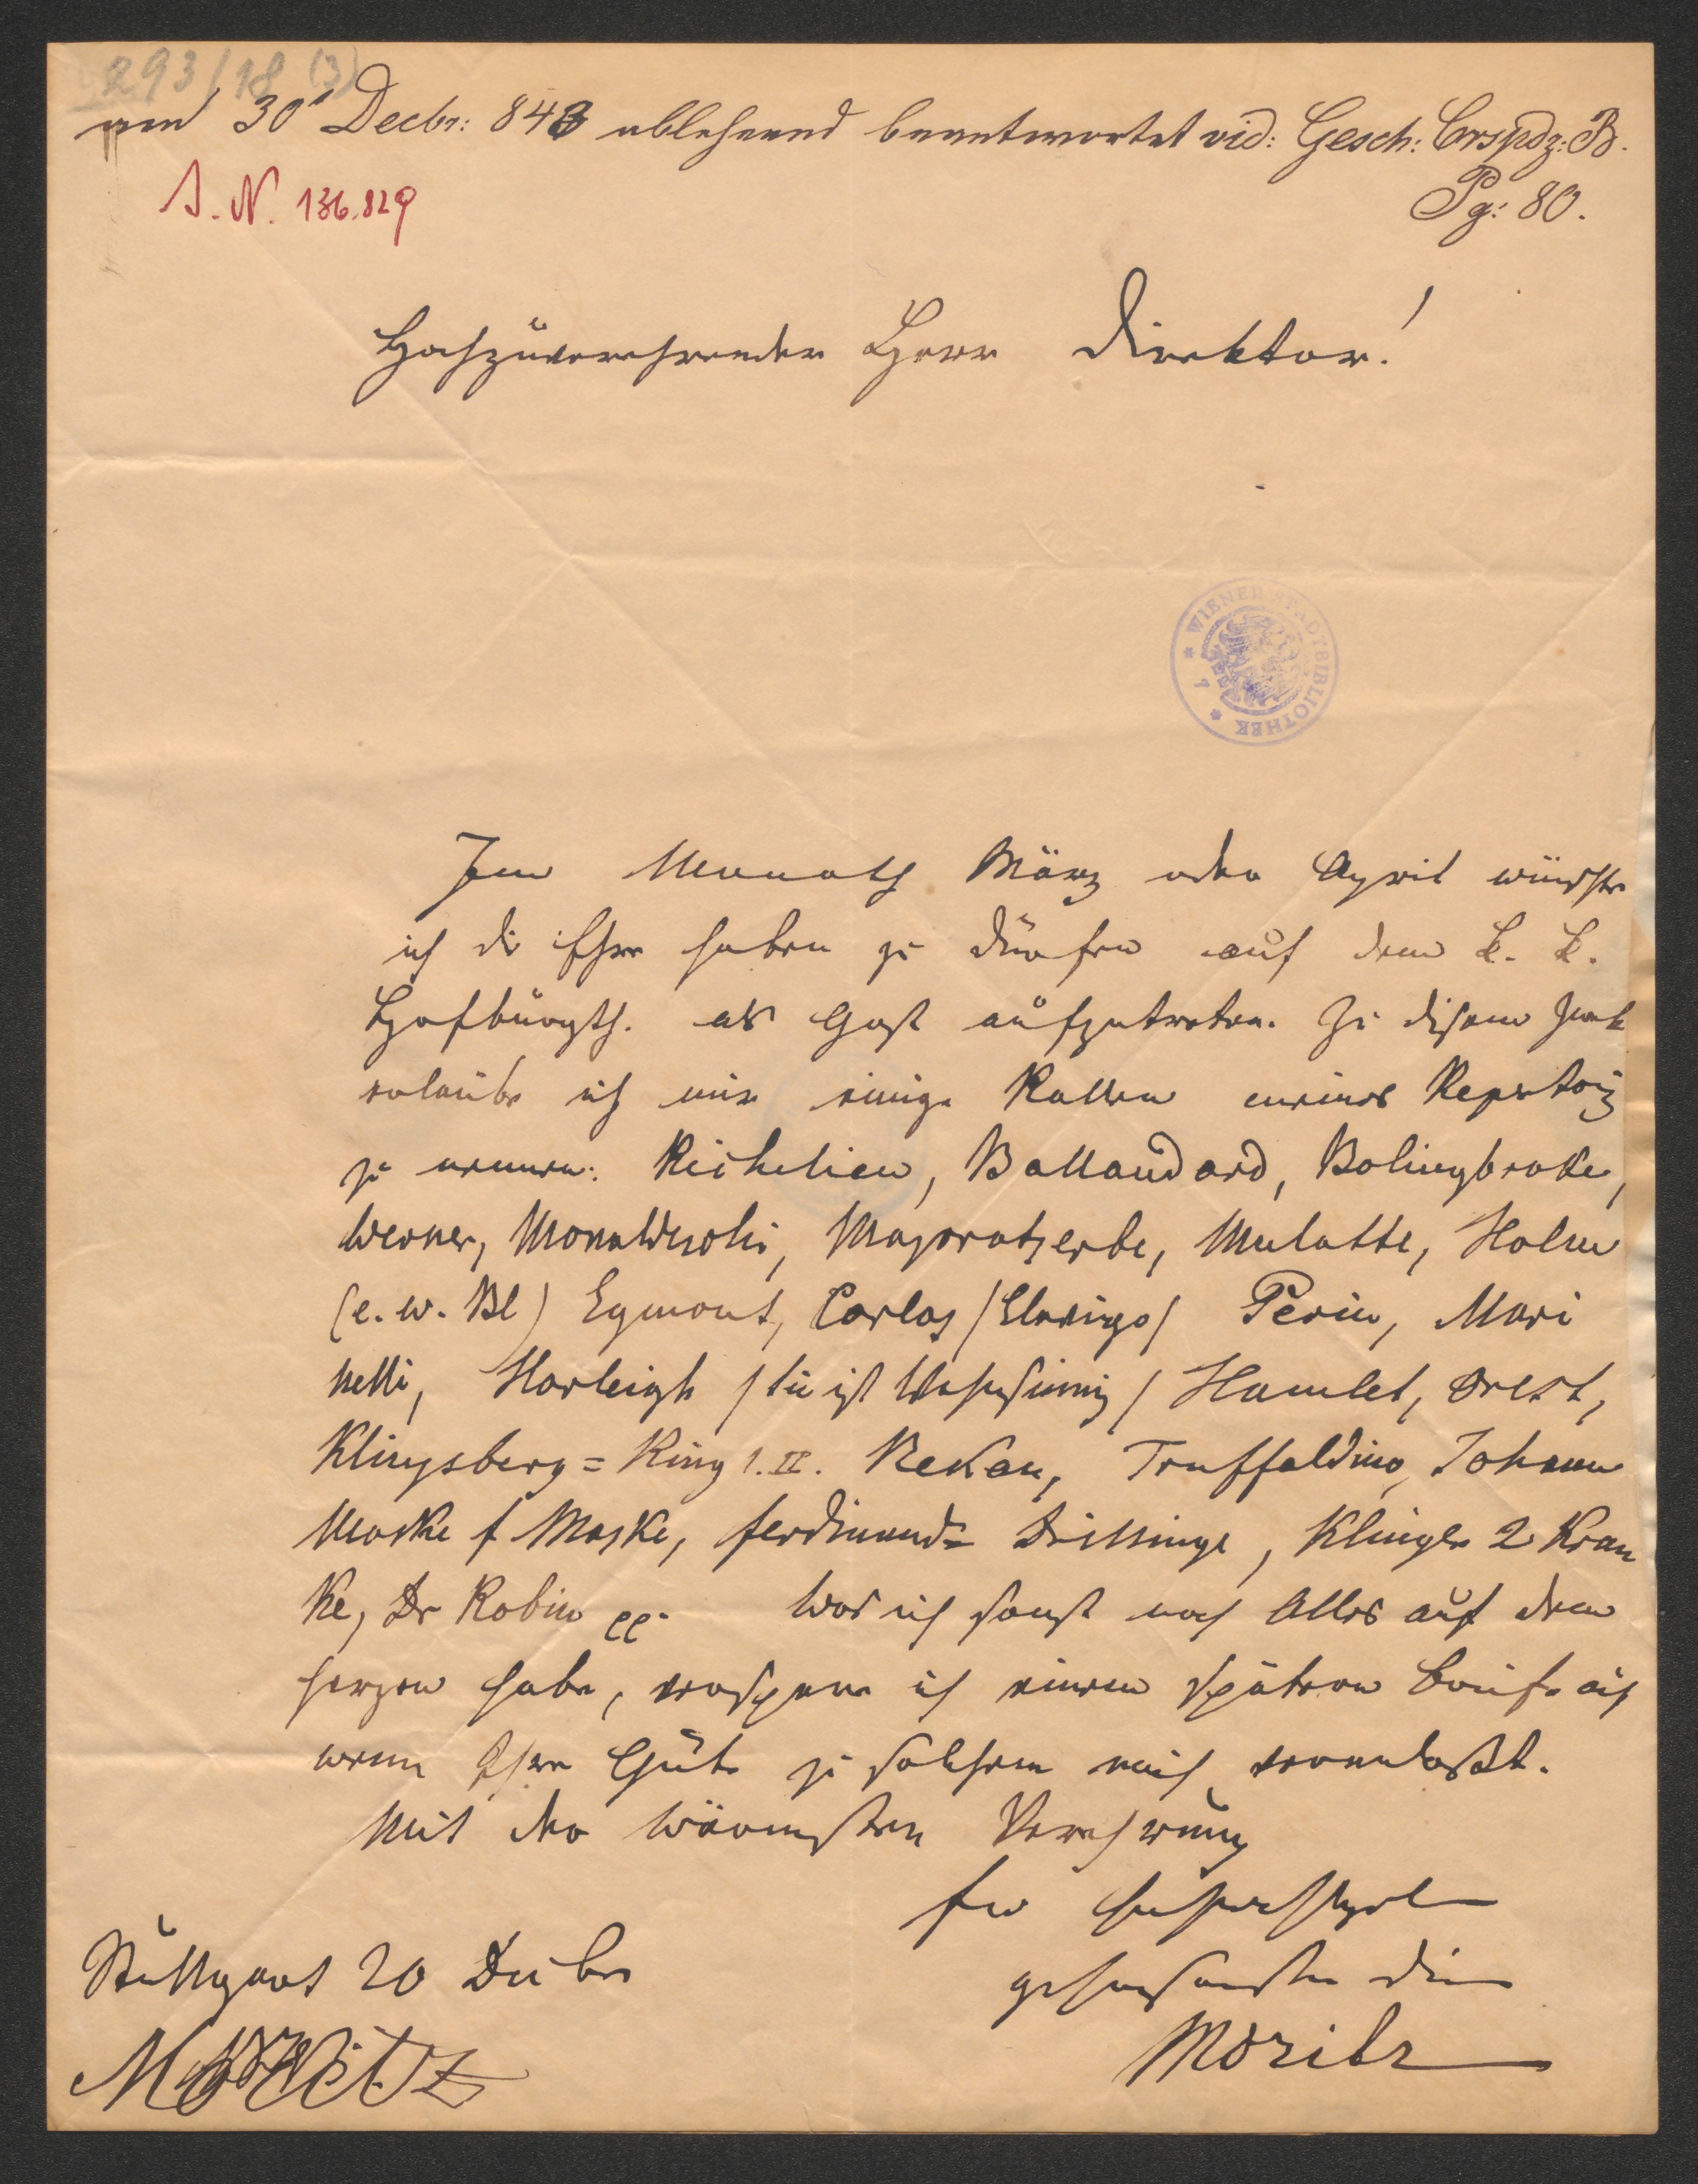 293/18 (3)
am 30' Decbr: 843 ablehnend beantwortet vid: Gesch: Corspdz: B.
Pg: 80.
J. N. 136.829
Hochzuverehrender Herr Direktor!
WIENER STADTBIBLIOTHEK
Im Monath März oder April wünschte
ich die Ehre haben zu dürfen auf dem k. k.
Hofburgth. als Gast aufzutreten. Zu disem Zwek
erlaube ich mir einige Rollen meines Repertoirs
zu nennen: Richelieu, Ballandard, Bolingbroke,
Werner, Monaldeschi, Majoratserbe, Mulatte, Holm
(e. w. Bl) Egmont, Carlos /Clavigo/ Perin, Mari
nelli, Harleigh /Sie ist Wahnsinnig/ Hamlet, Orest,
Klingsberg = Ring 1. II. Rekau, Truffaldino, Johann
Maske f Maske, Ferdinand = Drillinge, Klinger 2 Kran
ke, Dr Robin pp. Was ich sonst noch Alles auf dem
Herzen habe, verspare ich einem spätern Briefe auf
wenn Ihre Güte zu solchem mich veranlaßt.
Mit der wärmsten Verehrung
Ew
gehorsamster Diener
Stuttgart 20 Decbr
Moritz
Moritz